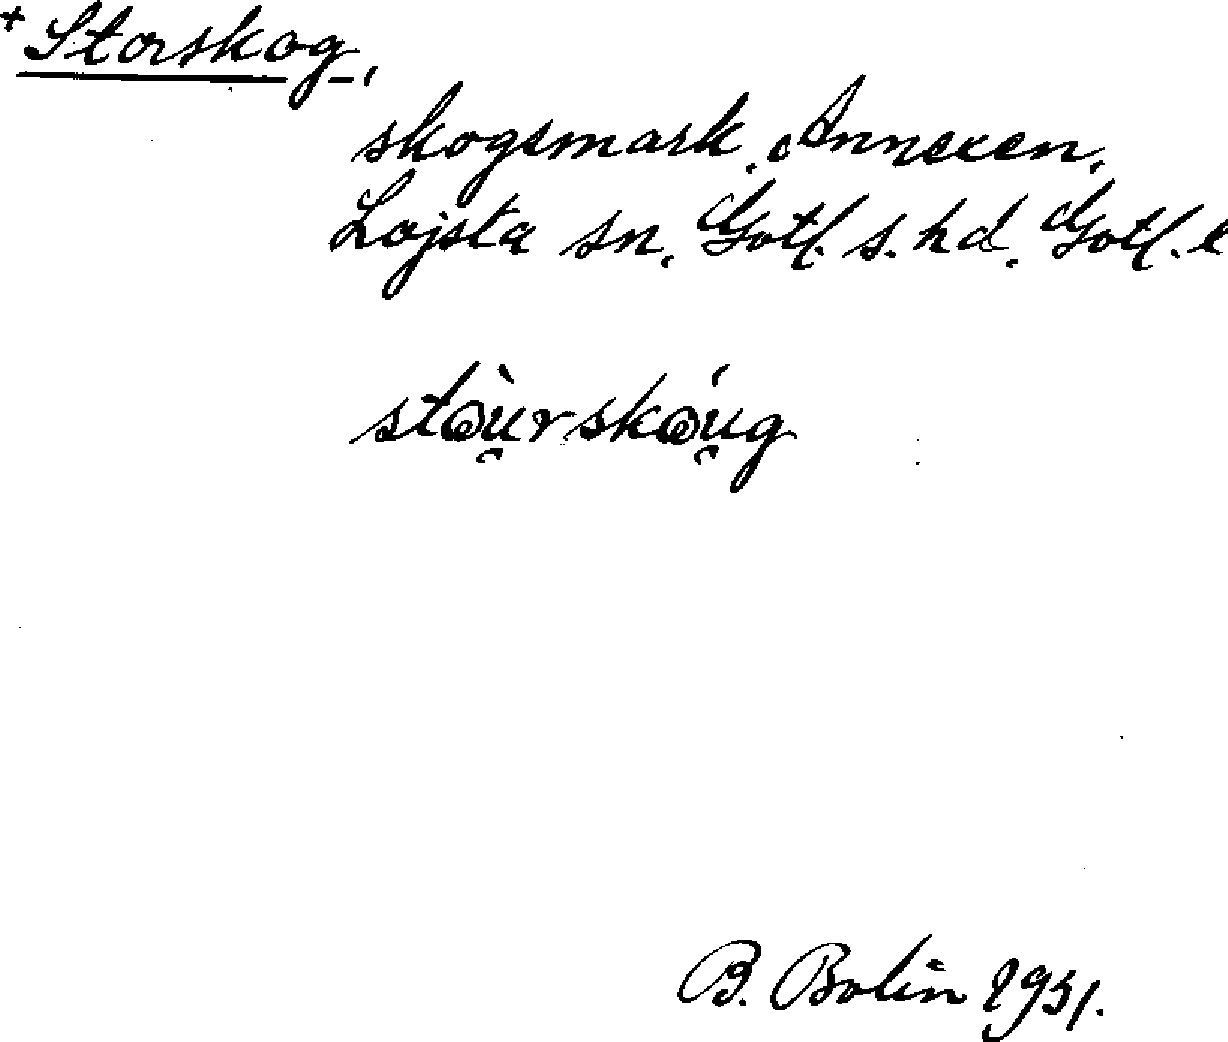 + Storskog,
skogsmark, Annexen,
Lojsta sn, Gotl. s. hd, Gotl. l
B. Bolin 1931.